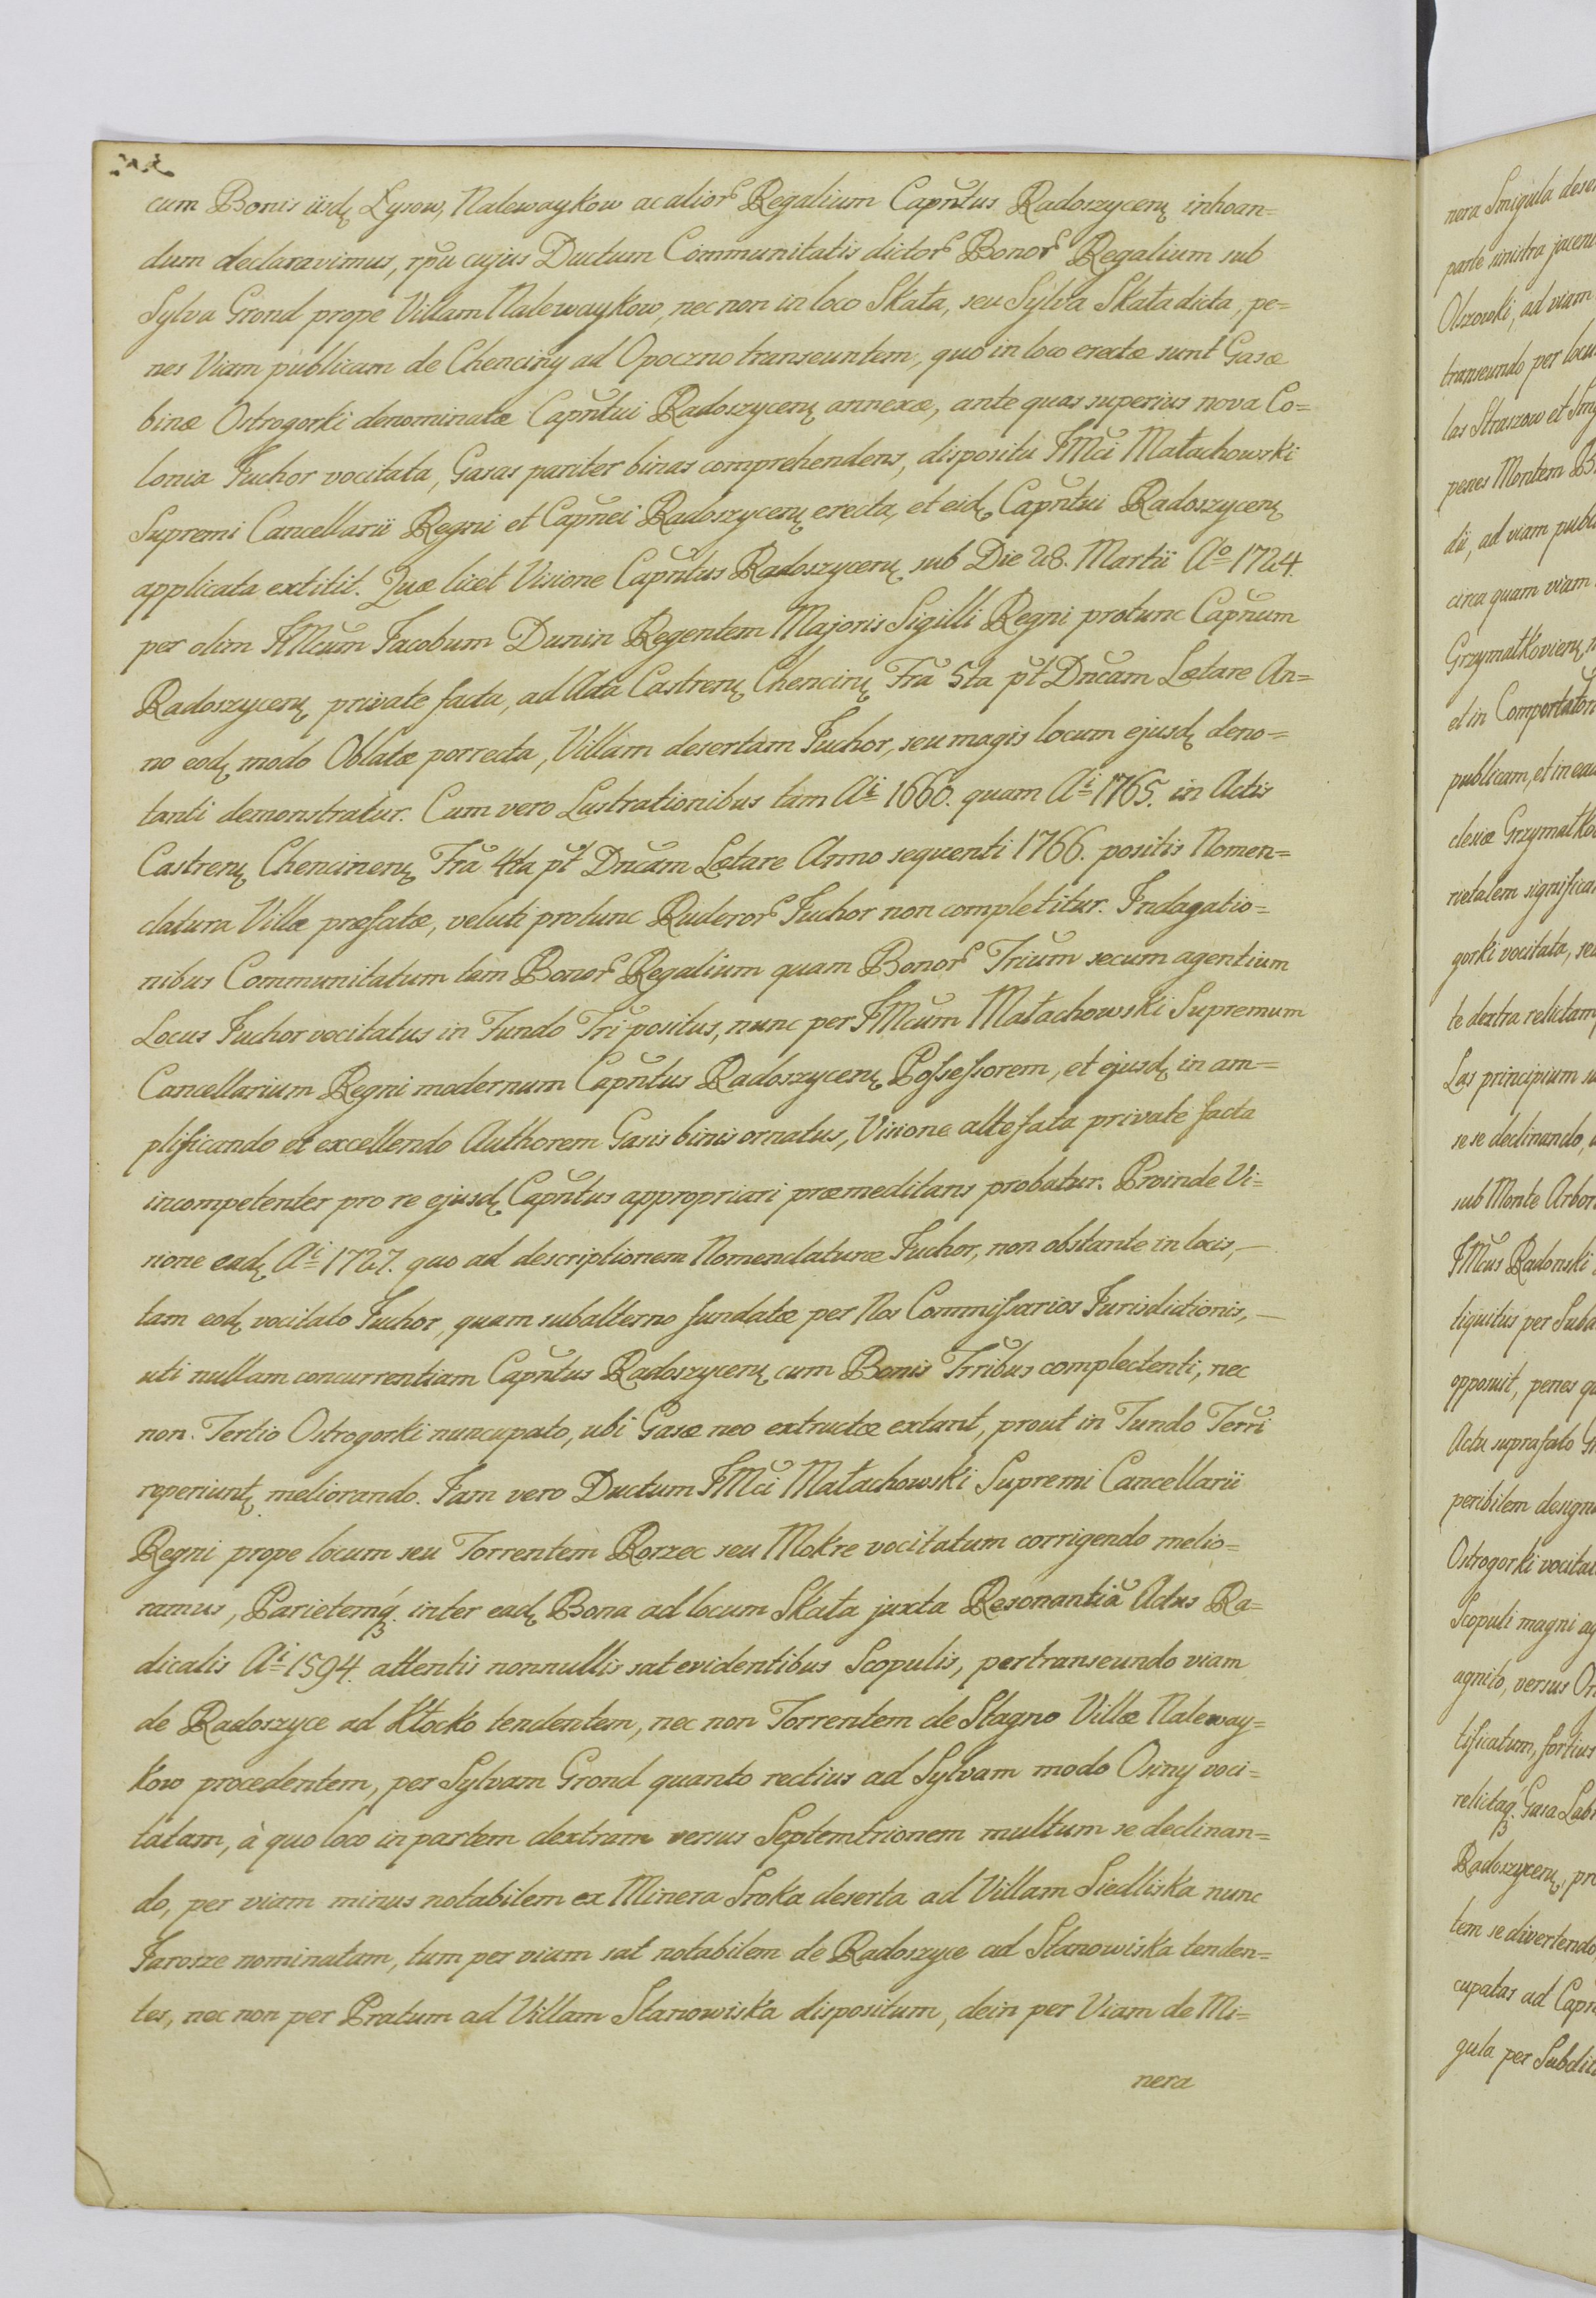 cum Bonis iisdę Łysow, Nalewaykow ac alior̃ Regalium Capñtus Radoszycenę inhoan=
dum declaravimus, rp̃u cujus Ductum Communitatis dictor̃ Bonor̃ Regalium sub
Sylva Grond prope Villam Nalewaykow, nec non in loco Skała, seu Sylva Skała dicta, pe=
nes Viam publicam de Chenciny ad Opoczno transeuntem, quo in loco erectæ sunt Gasæ
binæ Ostrogorki denominatæ Capñtui Radoszycenę annexæ, ante quas superius nova Co=
lonia Juchor vocitata, Gasas pariter binas comprehendens, dispositu JMci Małachowski
Supremi Cancellarii Regni et Capñei Radoszycenę erecta, et eidę Capñtui Radoszycenę
applicata extitit. Quæ licet Visione Capñtus Radoszycenę sub Die 28. Martii Aº 1724.
per olim JMcum Jacobum Dunin Regentem Majoris Sigilli Regni protunc Capñum
Radoszycenę private facta, ad Acta Castrenę Chencinę Fr̃a 5ta p̃t Dñcam Lætare An=
no eodę modo Oblatæ porrecta, Villam desertam Juchor, seu magis locum ejusdę deno=
tanti demonstratur. Cum vero Lustrationibus tam Ai 1660. quam Ai 1765. in Actis
Castrenę Chencinenę Fr̃a 4ta p̃t Dñcam Lætare Anno sequenti 1766. positis Nomen=
clatura Villæ præfatæ, veluti protunc Ruderor̃ Juchor non completitur. Indagatio=
nibus Communitatum tam Bonor̃ Regalium quam Bonor̃ Tr̃ium secum agentium
Locus Juchor vocitatus in Fundo Tr̃i positus, nunc per JMcum Małachowski Supremum
Cancellarium Regni modernum Capñtus Radoszycenę Possessorem, et ejusdę in am=
plificando et excellendo Authorem Gasis binis ornatus, Visione altefata private facta
incompetenter pro re ejusdę Capñtus appropriari præmeditans probatur. Proinde Vi=
sione eadę Ai 1727. quo ad descriptionem Nomenclaturæ Juchor, non obstante in locis,
tam eodę vocitato Juchor, quam subalterno fundatæ per Nos Commissarios Jurisdictionis,
uti nullam concurrentiam Capñtus Radoszycenę cum Bonis Tr̃ribus complectenti, nec
non Tertio Ostrogorki nuncupato, ubi Gasæ neo extructæ extant, prout in Fundo Terr̃i
reperiuntę meliorando. Jam vero Ductum JMci Małachowski Supremi Cancellarii
Regni prope locum seu Torrentem Rorzec seu Mokre vocitatum corrigendo melio=
ramus, Parietemq́ȝ inter eadę Bona ad locum Skała juxta Resonantiã Actus Ra=
dicalis Ai 1594. attentis nonnullis sat evidentibus Scopulis, pertranseundo viam
de Radoszyce ad Kłocko tendentem, nec non Torrentem de Stagno Villæ Naleway=
kow procedentem, per Sylvam Grond quanto rectius ad Sylvam modo Osiny voci=
tatam, à quo loco in partem dextram versus Septemtrionem multum se declinan=
do, per viam minus notabilem ex Minera Sroka deserta ad Villam Siedliska nunc
Jarosze nominatam, tum per viam sat notabilem de Radoszyce ad Stanowiska tenden=
tes, nec non per Pratum ad Villam Stanowiska dispositum, dein per Viam de Mi=
nera
nera Smigula
parte sinistra
ad viam
transeundo per
las Straszow et
penes Montem
dii, ad viam
circa quam viam
Grzymałkovienę
et in
publicam, et in
clesiæ
rietatem
gorki vocitata,
te dextra relictam
Las principium
se se declinando,
sub Monte
JMcus Radonski
tiquitus per
opposuit, penes
Actu suprafato
peribilem
Ostrogorki
Scopuli magni
agnito, versus
tificatum, fortius
relictaq́ȝ Gasa
Radoszycenę,
tem se divertendo,
cupatas ad
gula per